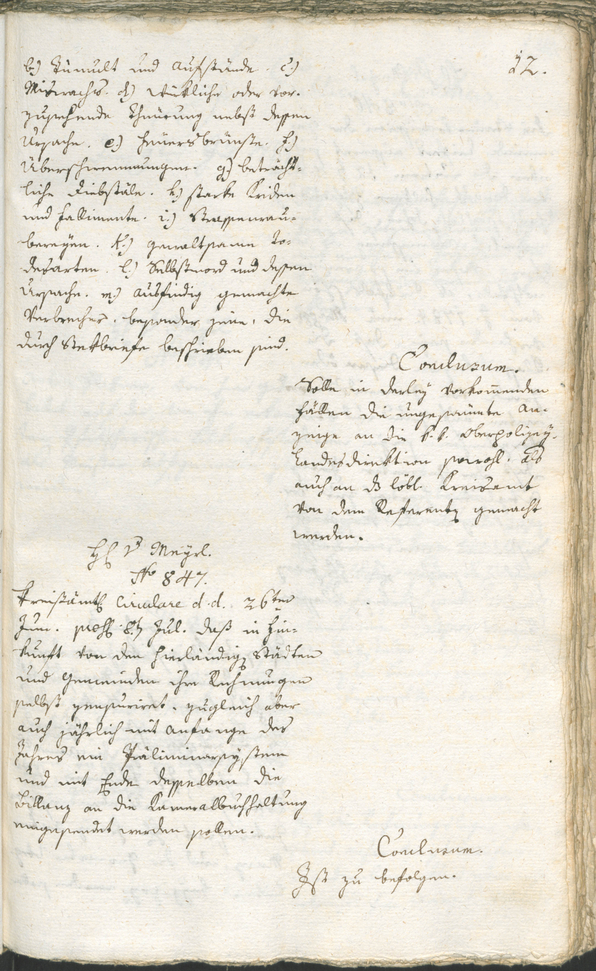 22.
b.) Tumult und Aufstände. c.)
Miswachs. d.) Wirkliche oder vor-
zusehende Theurung nebst dessen
Ursache. e.) Feuersbrünste. f.)
Überschwemmungen. g.) beträcht-
liche Diebstäle. h.) starke Kriden
und Fallimente. i.) Strassenrau-
bereyen. k.) gewaltsame To-
desarten. l.) Selbstmord und dessen
Ursache. m.) ausfindig gemachte
Verbrecher, besonder jene, die
durch Stekbriefe beschrieben sind.
Conclusum.
Solle in derley vorkommenden
Fällen die ungesäumte An-
zeige an die k. k. Oberpolizey-
Landesdirektion sowohl, als
auch an das löbl. Kreisamt
von dem Referenten gemacht
werden.
H. v. Mayrl.
No 847.
Kreisamts Circulare d. d. 26ten
Jun. 8ten Jul. daß in Hin-
kunft von den hierländigen Städten
und Gemeinden ihre Rechnungen
selbst zensuriret, zugleich aber
auch jährlich mit Anfange des
Jahres ein Präliminarsystem
und mit Ende desselben die
Billanz an die Kameralbuchhaltung
eingesendet werden sollen.
Conclusum.
Ist zu befolgen.